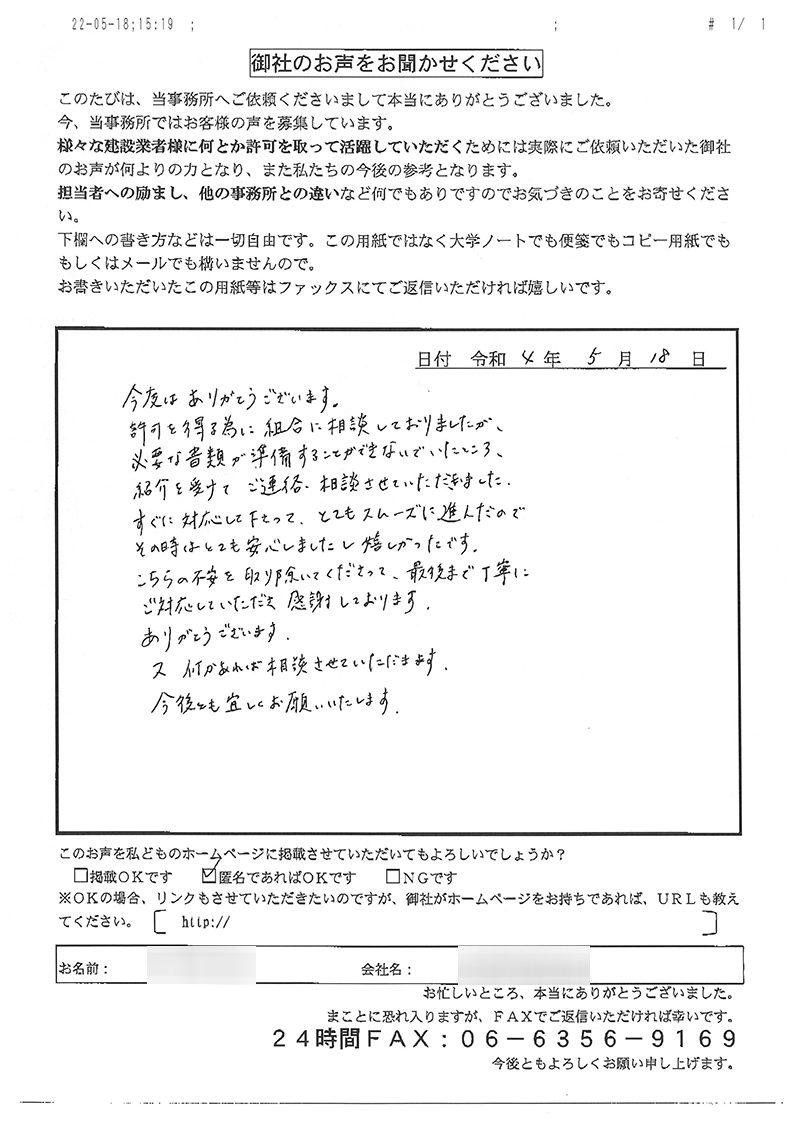 22-05-18;15:19 ; ; # 1/ 1
御社のお声をお聞かせください
このたびは、当事務所へご依頼くださいまして本当にありがとうございました。
今、当事務所ではお客様の声を募集しています。
様々な建設業者様に何とか許可を取って活躍していただくためには実際にご依頼いただいた御社
のお声が何よりの力となり、また私たちの今後の参考となります。
担当者への励まし、他の事務所との違いなど何でもありですのでお気づきのことをお寄せくださ
い。
下欄への書き方などは一切自由です。この用紙ではなく大学ノートでも便箋でもコピー用紙でも
もしくはメールでも構いませんので。
お書きいただいたこの用紙等はファックスにてご返信いただければ嬉しいです。
日付 令和 4 年 5 月 18 日
今度は ありがとうございます。
許可を得る為に 組合に相談しておりましたが、
必要な書類が準備することができないでいたところ、
紹介を受けて ご連絡、相談させていただきました。
すぐに対応して下さって、とてもスムーズに進んだので
その時はとても安心しましたし嬉しかったです。
こちらの不安を取り除いてくださって、最後まで丁寧に
ご対応していただき 感謝しております。
ありがとうございます。
又 何かあれば相談させていただきます。
今後とも宜しくお願いいたします。
このお声を私どものホームページに掲載させていただいてもよろしいでしょうか？
□掲載OKです ☑匿名であればOKです □NGです
※OKの場合、リンクもさせていただきたいのですが、御社がホームページをお持ちであれば、URLも教え
てください。 [ http:// ]
お名前： 会社名：
お忙しいところ、本当にありがとうございました。
まことに恐れ入りますが、FAXでご返信いただければ幸いです。
24時間FAX：06－6356－9169
今後ともよろしくお願い申し上げます。